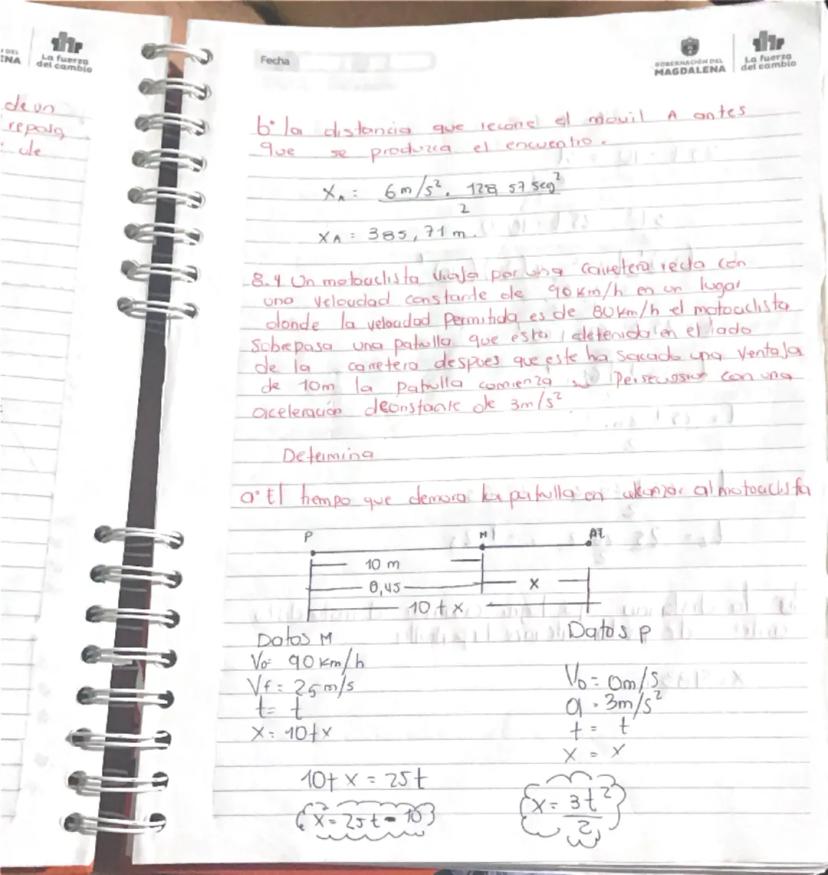 DEL
INA
La fuerza
del cambio
de un
reposa
de
Fecha
GOBERNACIÓN DEL
MAGDALENA
La fuerza
del cambio
b. la distancia que recorre el movil A antes
que se produzca el encuentro.
XA = 6m/s². 128,57 seg²
2
XA = 385,71 m.
8.4 Un motociclista viaja por una carretera recta con
una velocidad constante de 90 km/h en un lugar
donde la velocidad permitida es de 80 km/h el motociclista
sobrepasa una patrulla que esta detenida en el lado
de la carretera despues que este ha sacado una ventaja
de 10m la patrulla comienza su con una
aceleración deconstante de 3m/s²
Determina
a. El tiempo que demora la patrulla en alcanzar al motociclista
P M
10 m
0,45 x
10 + x
Datos M Datos P
Vo = 90 km/h
Vf = 25 m/s Vo = 0m/s
t = t a = 3m/s²
x = 10 + x t = t
x = x
10 + x = 25t
x = 25t - 10 x = 3t²
2